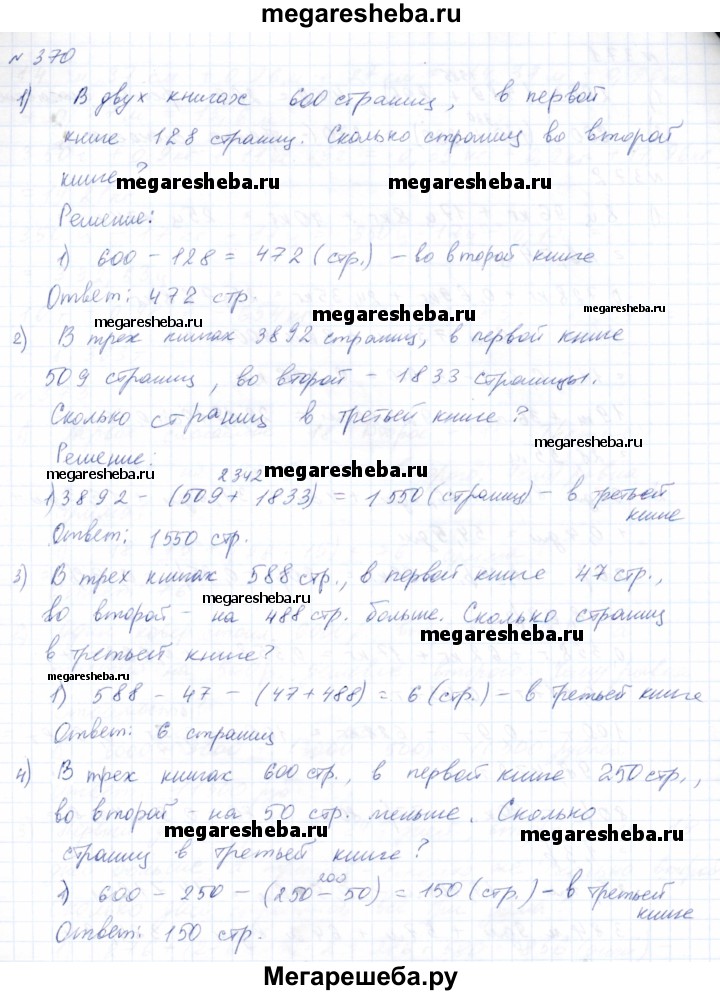 megaresheba.ru
№ 370
1) В двух книгах 600 страниц, в первой
книге 128 страниц. Сколько страниц во второй
книге?
megaresheba.ru megaresheba.ru
Решение:
1) 600 - 128 = 472 (стр.) - во второй книге
Ответ: 472 стр.
megaresheba.ru megaresheba.ru megaresheba.ru
2) В трех книгах 3892 страниц, в первой книге
509 страниц, во второй - 1833 страницы.
Сколько страниц в третьей книге?
megaresheba.ru
Решение:
megaresheba.ru 2342 megaresheba.ru
1) 3892 - (509 + 1833) = 1550 (страниц) - в третьей
книге
Ответ: 1550 стр.
3) В трех книгах 588 стр., в первой книге 47 стр.,
megaresheba.ru
во второй - на 488 стр. больше. Сколько страниц
megaresheba.ru
в третьей книге?
megaresheba.ru
1) 588 - 47 - (47 + 488) = 6 (стр.) - в третьей книге
Ответ: 6 страниц
4) В трех книгах 600 стр., в первой книге 250 стр.,
во второй - на 50 стр. меньше. Сколько
megaresheba.ru megaresheba.ru
страниц в третьей книге?
200
1) 600 - 250 - (250 - 50) = 150 (стр.) - в третьей
книге
Ответ: 150 стр.
Мегарешеба.ру